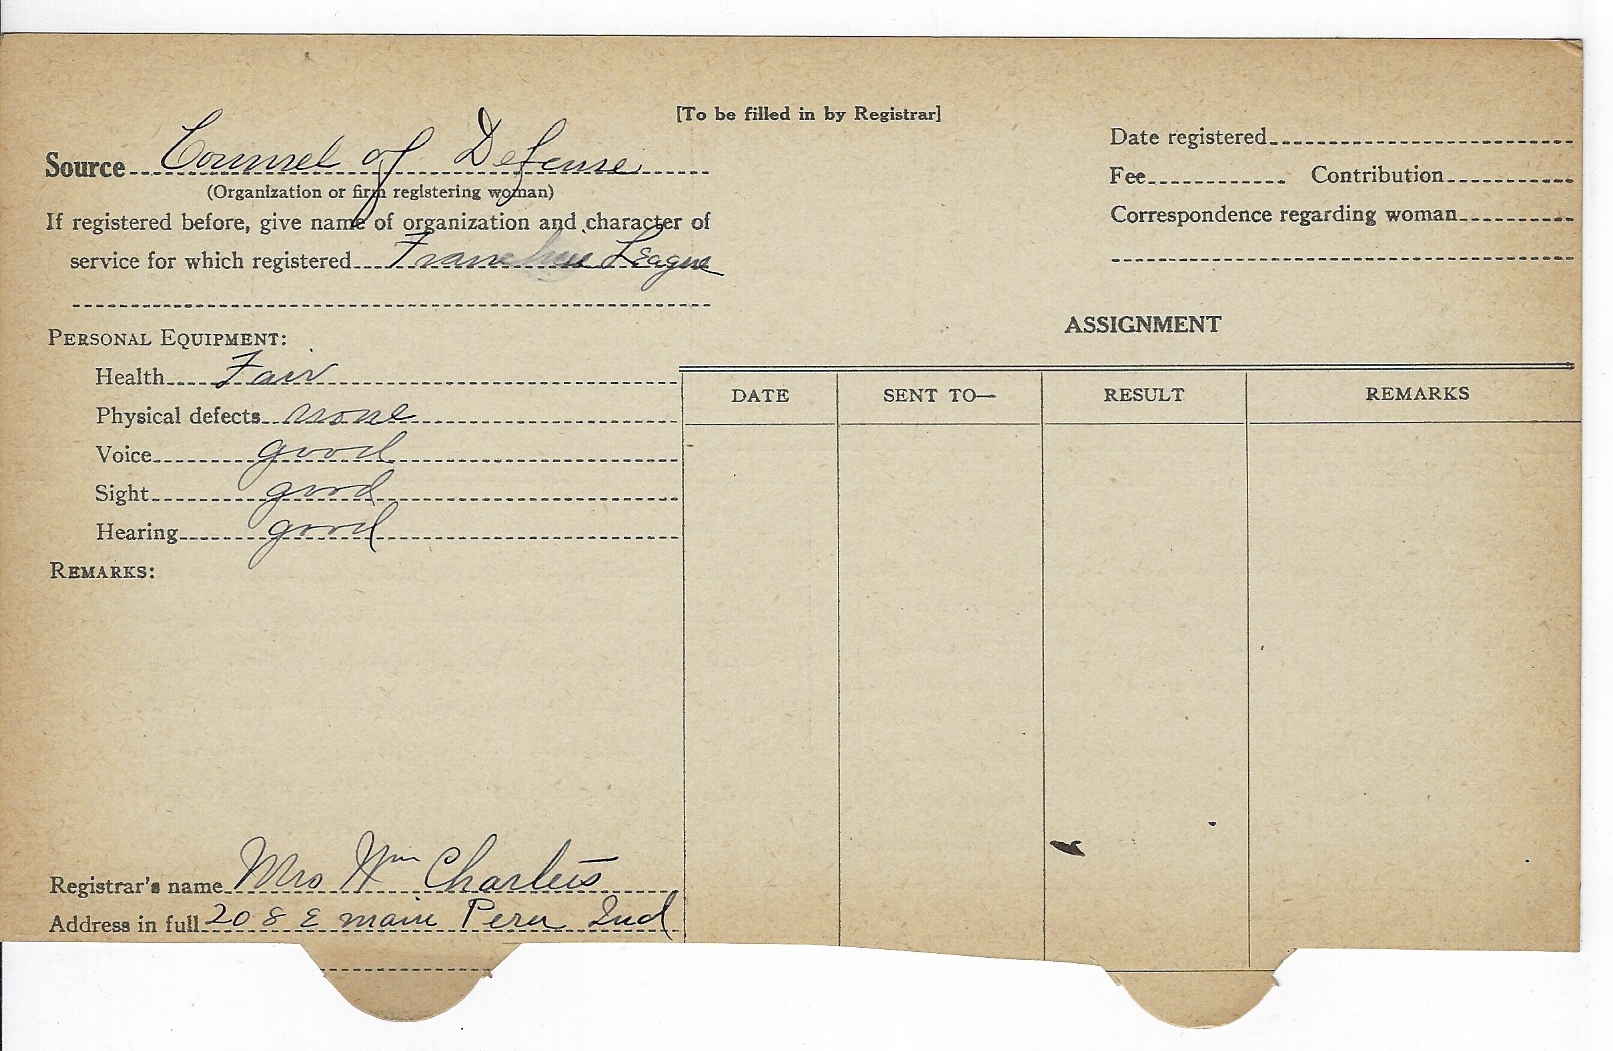 [To be filled in by Registrar]
Source Counsel of Defense
(Organization or firm registering woman)
If registered before, give name of organization and character of
service for which registered Franchise League
Date registered
Fee Contribution
Correspondence regarding woman
PERSONAL EQUIPMENT:
Health Fair
Physical defects none
Voice good
Sight good
Hearing good
REMARKS:
ASSIGNMENT
DATE SENT TO— RESULT REMARKS
Registrar's name Mrs Wm Charters
Address in full 208 E main Peru Ind